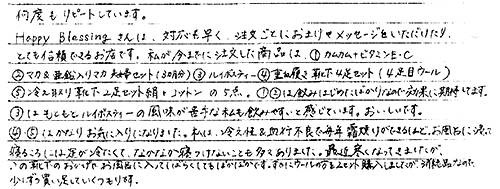 何度もリピートしています。
Happy Blessing さんは、対応も早く、注文ごとにおまけやメッセージをいただけたり、
とても信頼できるお店です。私が今までに注文した商品は、①カムカム+ビタミンE・C
②マカ&亜鉛入りマカ夫婦セット(30日分)③ルイボスティー④重ね履き靴下4足セット(4足目ウール)
⑤冷え取り靴下2足セット絹+コットン の5点。①②は飲みはじめたばかりなので効果に期待してます。
③はもともとルイボスティーの風味が苦手な私も飲みやすいと感じています。おいしいです。
④⑤はかなりお気に入りになりました。私は、冷え性&血行不良で毎年霜焼けができるほど。お風呂に浸って
寝るころには足が冷たくて、なかなか寝つけないことも多々ありました。最近寒くなってきましたが、
この靴下のおかげでお風呂に入ってしばらくしてもぽかぽかです。すでにウールの方も2セット購入しましたが、消耗品なので
少しずつ買い足していくつもりです。